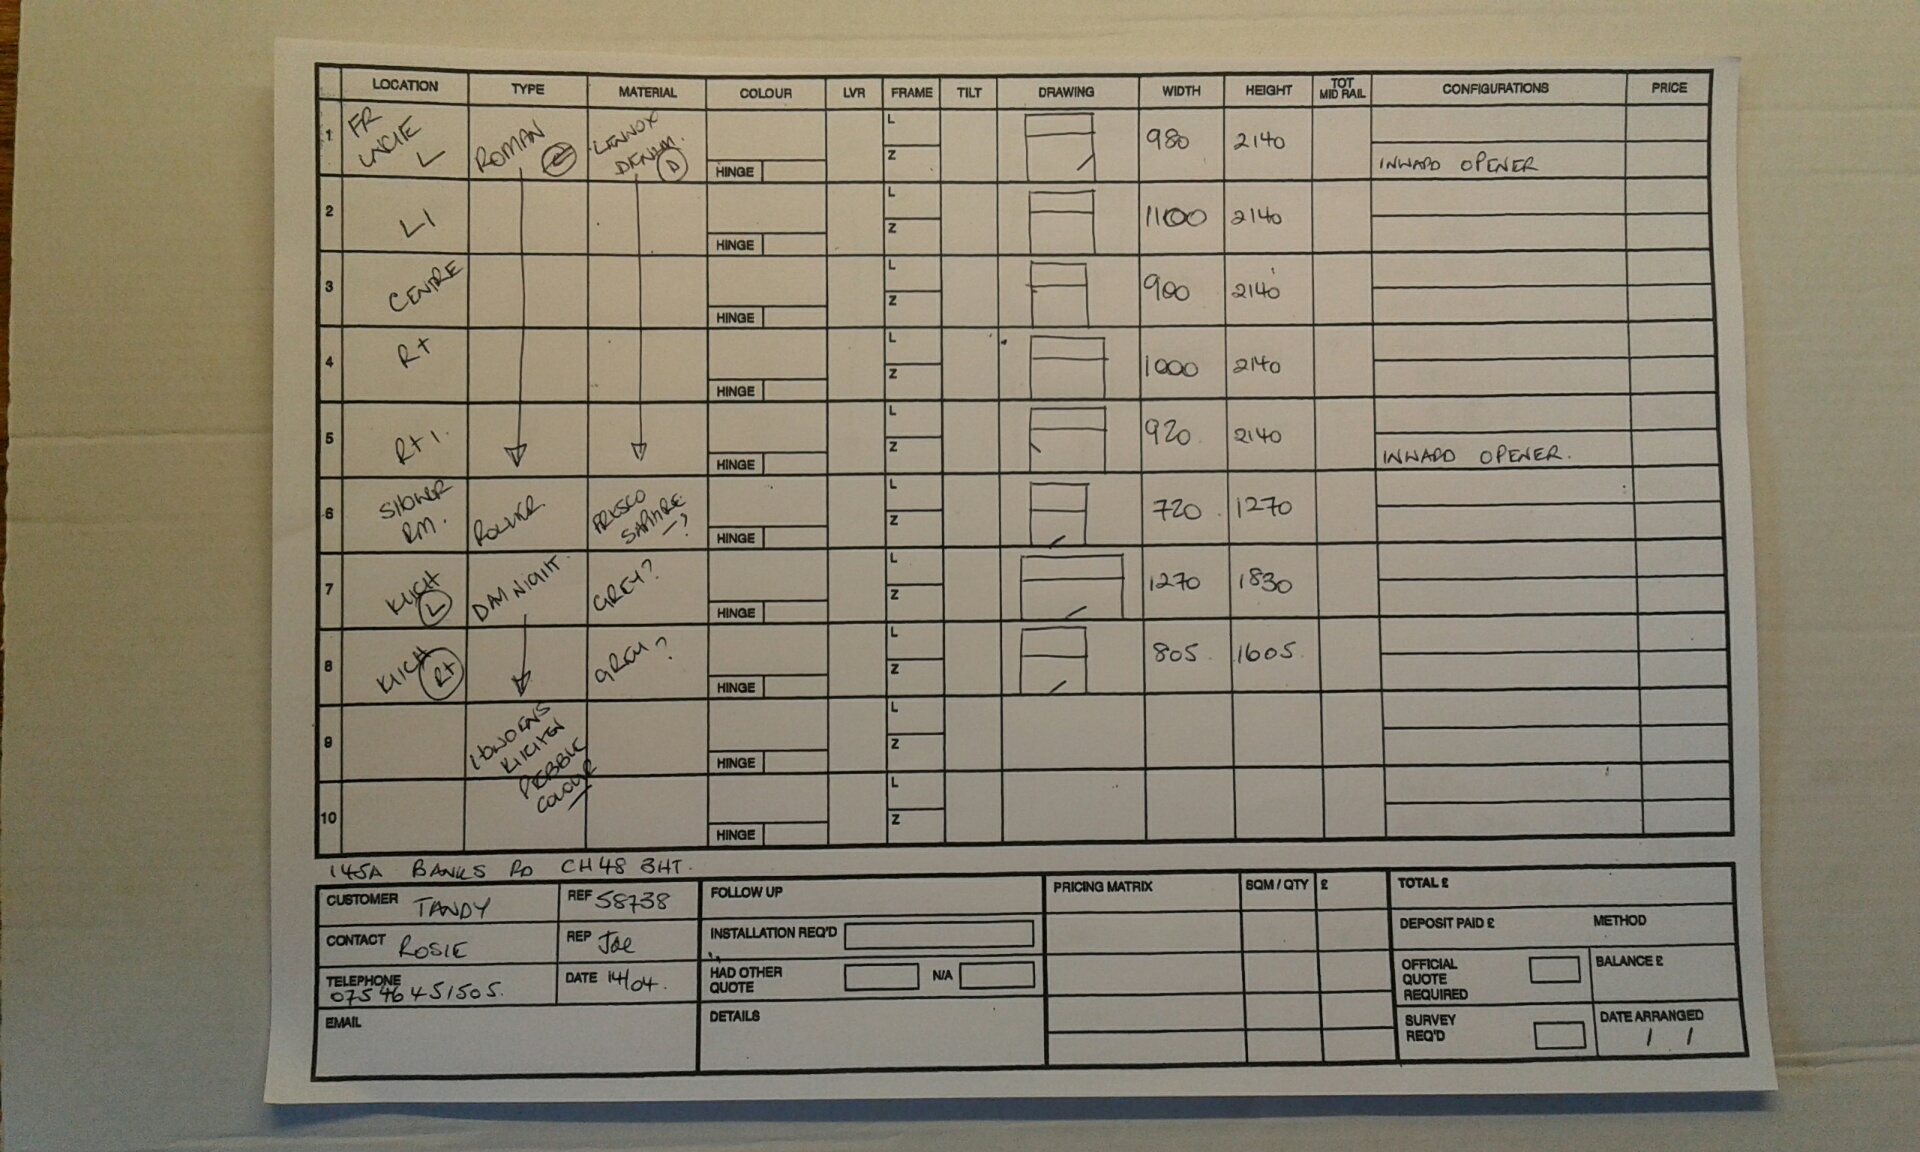 LOCATION TYPE MATERIAL COLOUR LVR FRAME TILT DRAWING WIDTH HEIGHT TOT MID RAIL CONFIGURATIONS PRICE
1 FR L ROMAN LENNOX DENIM. D HINGE L Z 980 2140 INWARD OPENER
2 L1 HINGE L Z 1100 2140
3 CENTRE HINGE L Z 900 2140
4 R+ HINGE L Z 1000 2140
5 R+1. HINGE L Z 920. 2140 INWARD OPENER.
6 SHOWER RM. ROLLER FRESCO HINGE L Z 720. 1270
7 KITCH L GREY? HINGE L Z 1270 1830
8 KITCH R+ GREY? HINGE L Z 805. 1605.
9 KITCHEN PEBBLE HINGE L Z
10 COLOUR HINGE L Z
145A BANKS RD CH48 3HT.
CUSTOMER TANDY REF 58738 FOLLOW UP PRICING MATRIX SQM / QTY £ TOTAL £
CONTACT ROSIE REP Joe INSTALLATION REQ'D DEPOSIT PAID £ METHOD
TELEPHONE 07546451505. DATE 14/04. HAD OTHER QUOTE N/A OFFICIAL QUOTE REQUIRED BALANCE £
EMAIL DETAILS SURVEY REQ'D DATE ARRANGED / /